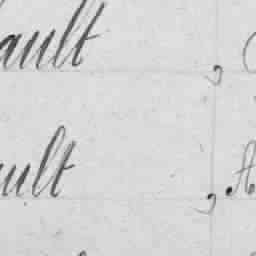 ault ,
ult , A